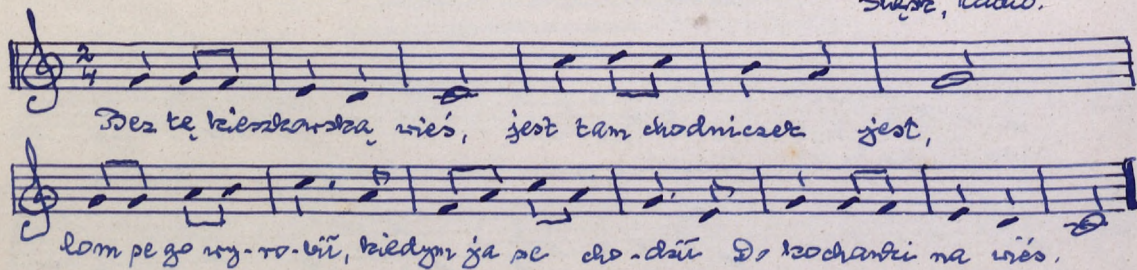 Śląsk, Radio.
2
4
Bez tę kieszkowską wieś, jest tam chodniczek jest,
łom se go wy-ro-bił, kiedym ja se cho-dził Do kochanki na wieś.